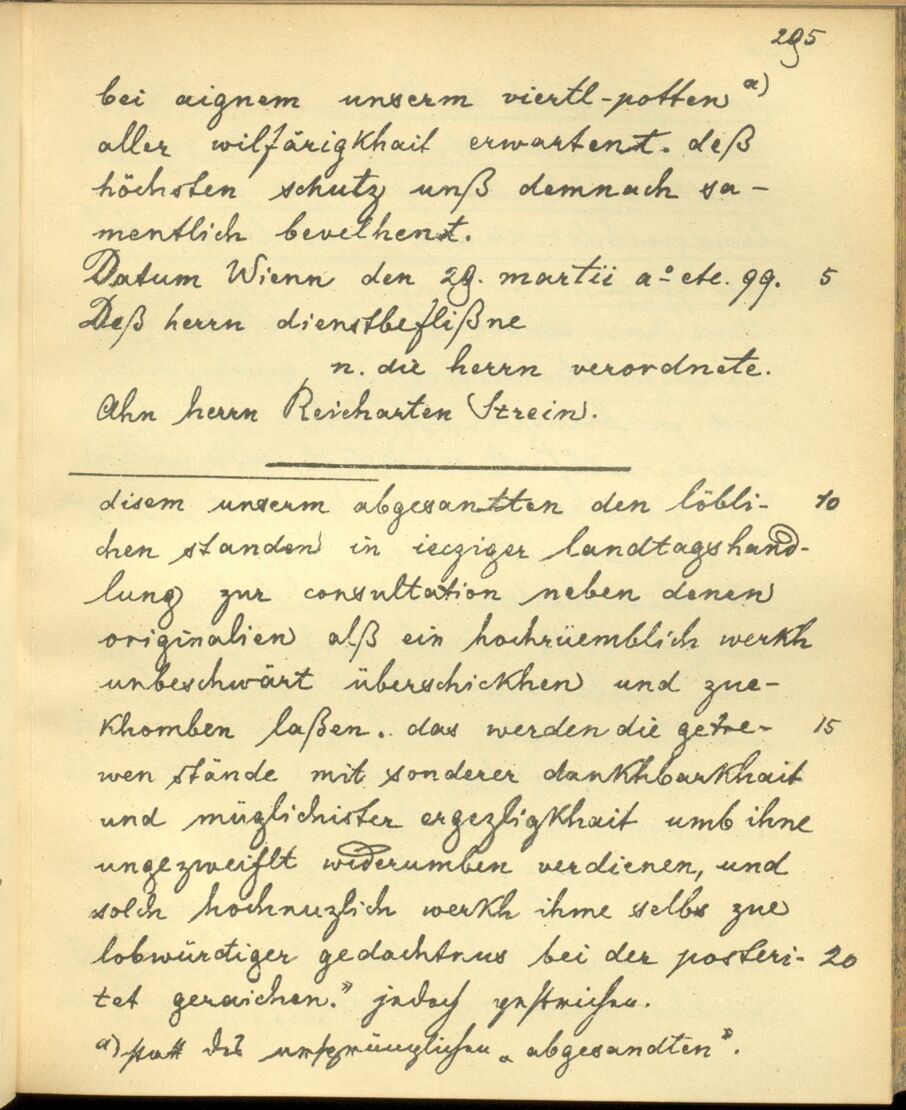 295
bei aignem unserm viertl-potten a)
aller wilfärigkhait erwartent. deß
höchsten schutz unß demnach sa-
mentlich bevelhent.
Datum Wienn den 29. martii aº etc. 99. 5
Deß herrn dienstbeflißne
n. die herrn verordnete.
Ahn herrn Reicharten Strein.
disem unserm abgesantten den löbli- 10
chen standen in iecziger landtagshand-
lung zur consultation neben denen
originalien alß ein hochrüemblich werkh
unbeschwärt überschickhen und zue-
khomben laßen. das werden die getre- 15
wen stände mit sonderer dankhbarkhait
und müglichister ergezligkhait umb ihne
ungezweiflt widerumben verdienen, und
solch hochnuzlich werkh ihme selbs zue
lobwürdiger gedachtnus bei der posteri- 20
tet geraichen.” jedoch gestrichen.
a) statt des ursprünglichen „abgesandten”.